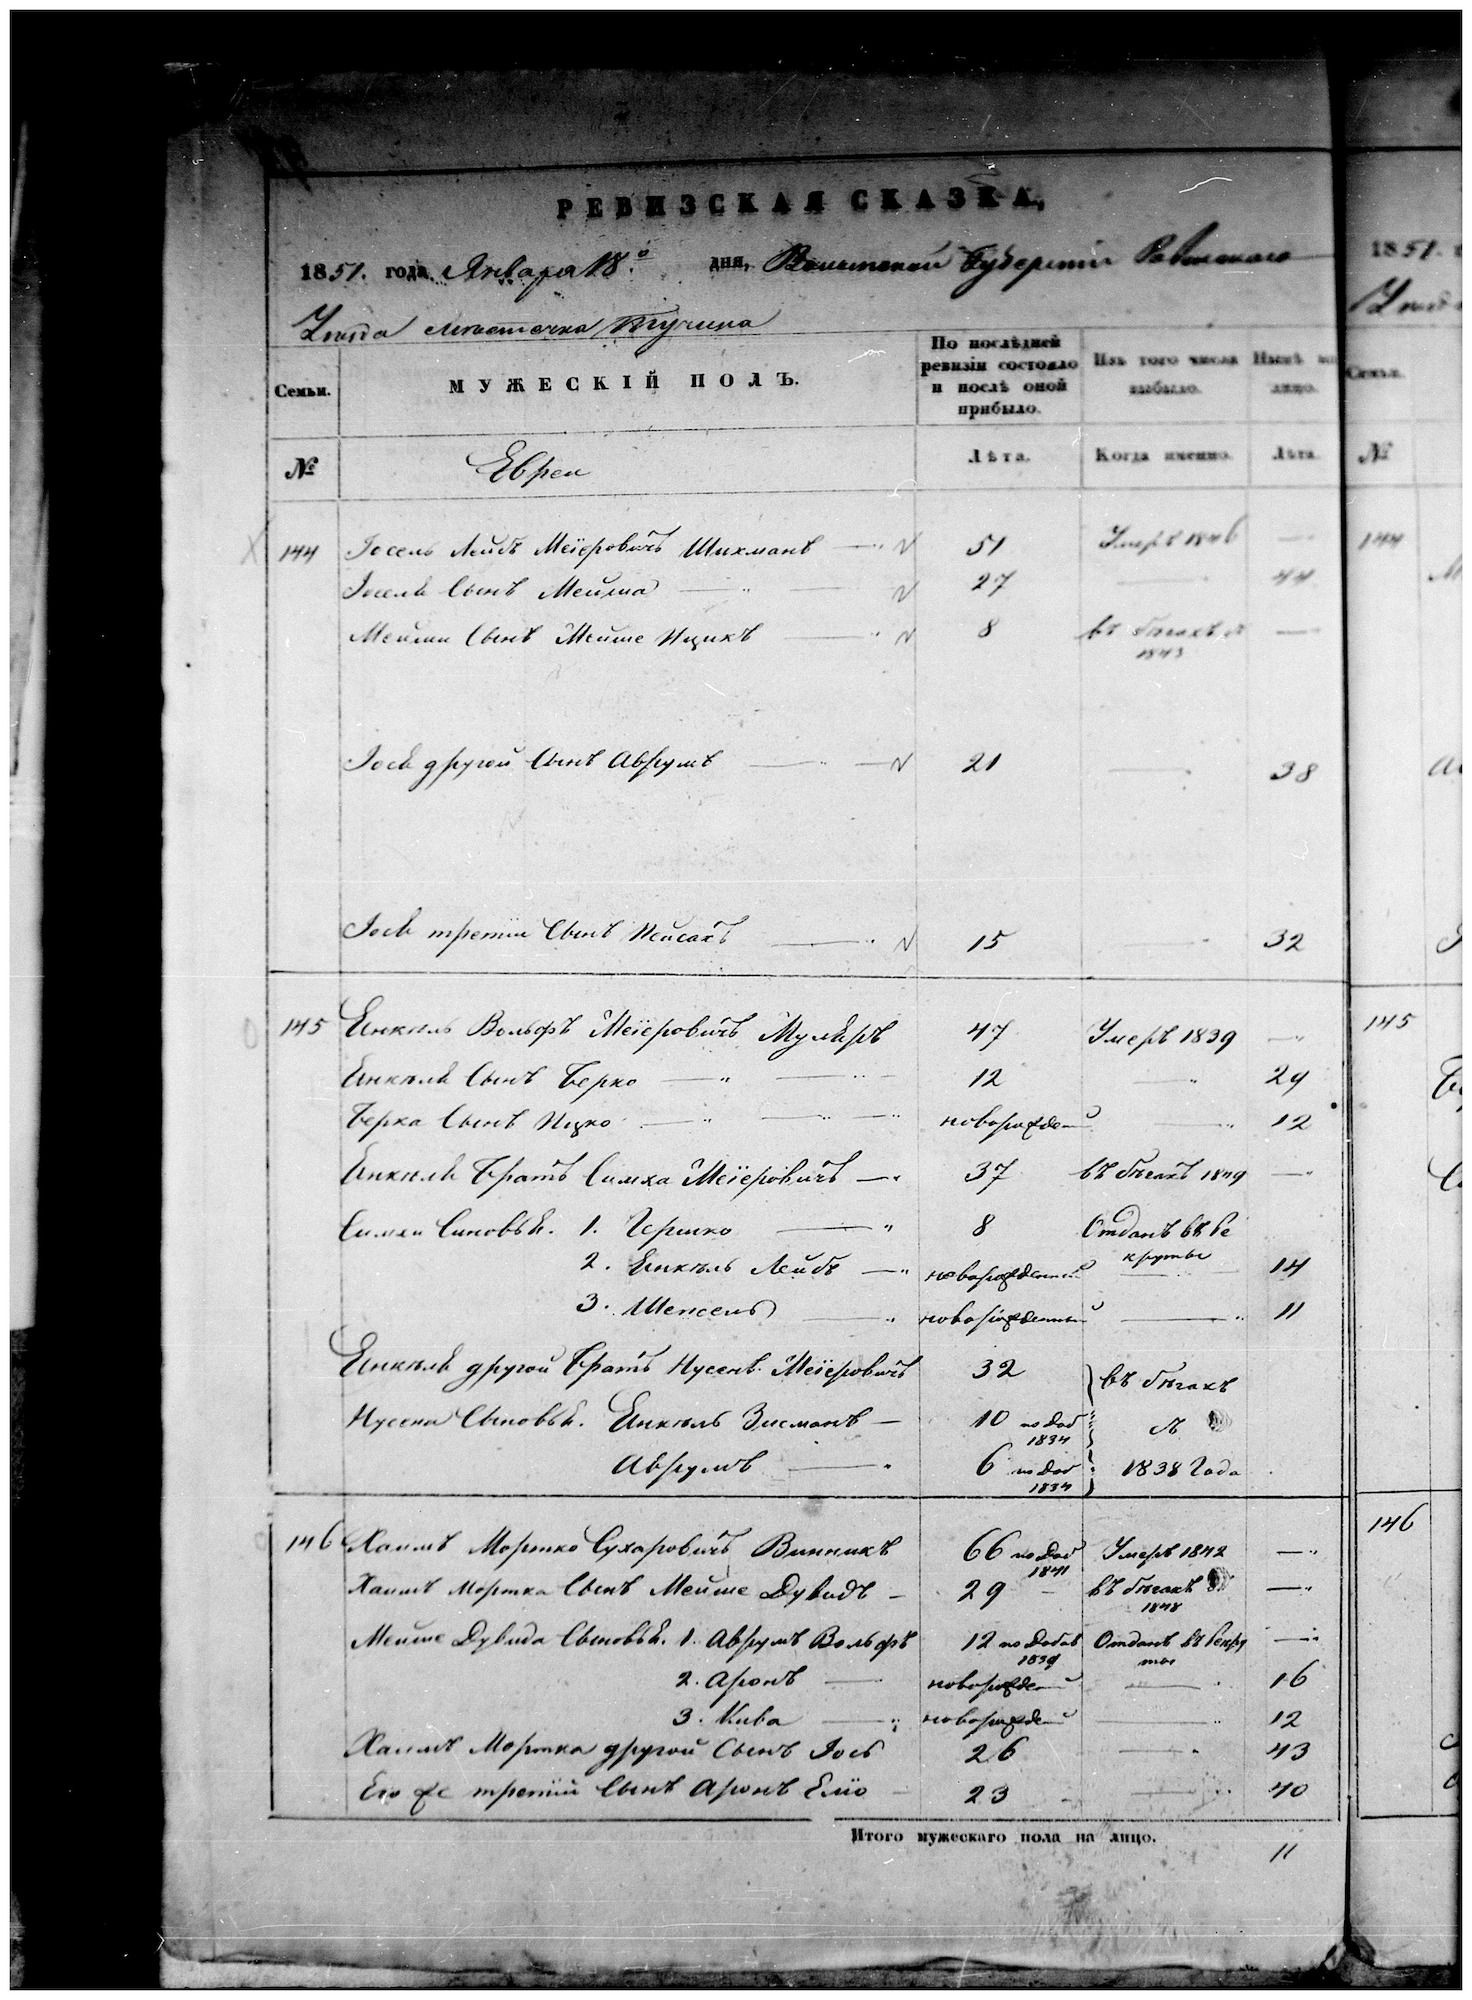 РЕВИЗСКАЯ СКАЗКА,
1851. года Января 18.го дня, Волынской Губерніи Ровенскаго
Уезда местечка Тучина
Семьи.
МУЖЕСКІЙ ПОЛЪ.
По послѣдней ревизіи состояло и послѣ оной прибыло.
Изъ того числа выбыло.
Нынѣ на лицо.
№
Евреи
Лѣта.
Когда именно.
Лѣта.
144 Іосель Лейбъ Меіеровичъ Шихманъ 51 Умеръ 1846
Іоселя Сынъ Мейша 27 44
Мейши Сынъ Мейше Ицикъ 8 въ бѣгахъ съ 1843
Іося другой Сынъ Аврумъ 21 38
Іося третій Сынъ Пейсахъ 15 32
145 Янкель Вольфъ Меіеровичъ Мулляръ 47 Умеръ 1839
Янкеля Сынъ Берко 12 29
Берка Сынъ Ицко новорожденный 12
Янкеля братъ Симха Меіеровичъ 37 въ бѣгахъ 1849
Симхи Синовья. 1. Гершко 8 Отданъ въ рекруты
2. Янкель Лейбъ новорожденный 14
3. Шепсель новорожденный 11
Янкеля другой братъ Нусенъ Меіеровичъ 32 въ бѣгахъ
Нусена Сыновья. Янкель Зисманъ 10 по доб 1834 съ
Аврумъ 6 по доб 1834 1838 Года
146 Хаимъ Мортко Сухаровичъ Винникъ 66 по доб 1841 Умеръ 1842
Хаимъ Мортка Сынъ Мейше Дувидъ 29 въ бѣгахъ 1848
Мейше Дувида Сыновья. 1. Аврумъ Вольфъ 12 по добав 1839 Отданъ въ рекруты
2. Аронъ новорожденный 16
3. Кива новорожденный 12
Хаимъ Мортка другой Сынъ Іось 26 43
Его же третій Сынъ Аронъ Еліо 23 40
Итого мужескаго пола на лицо. 11
1851.
Семьи.
№
144
145
146